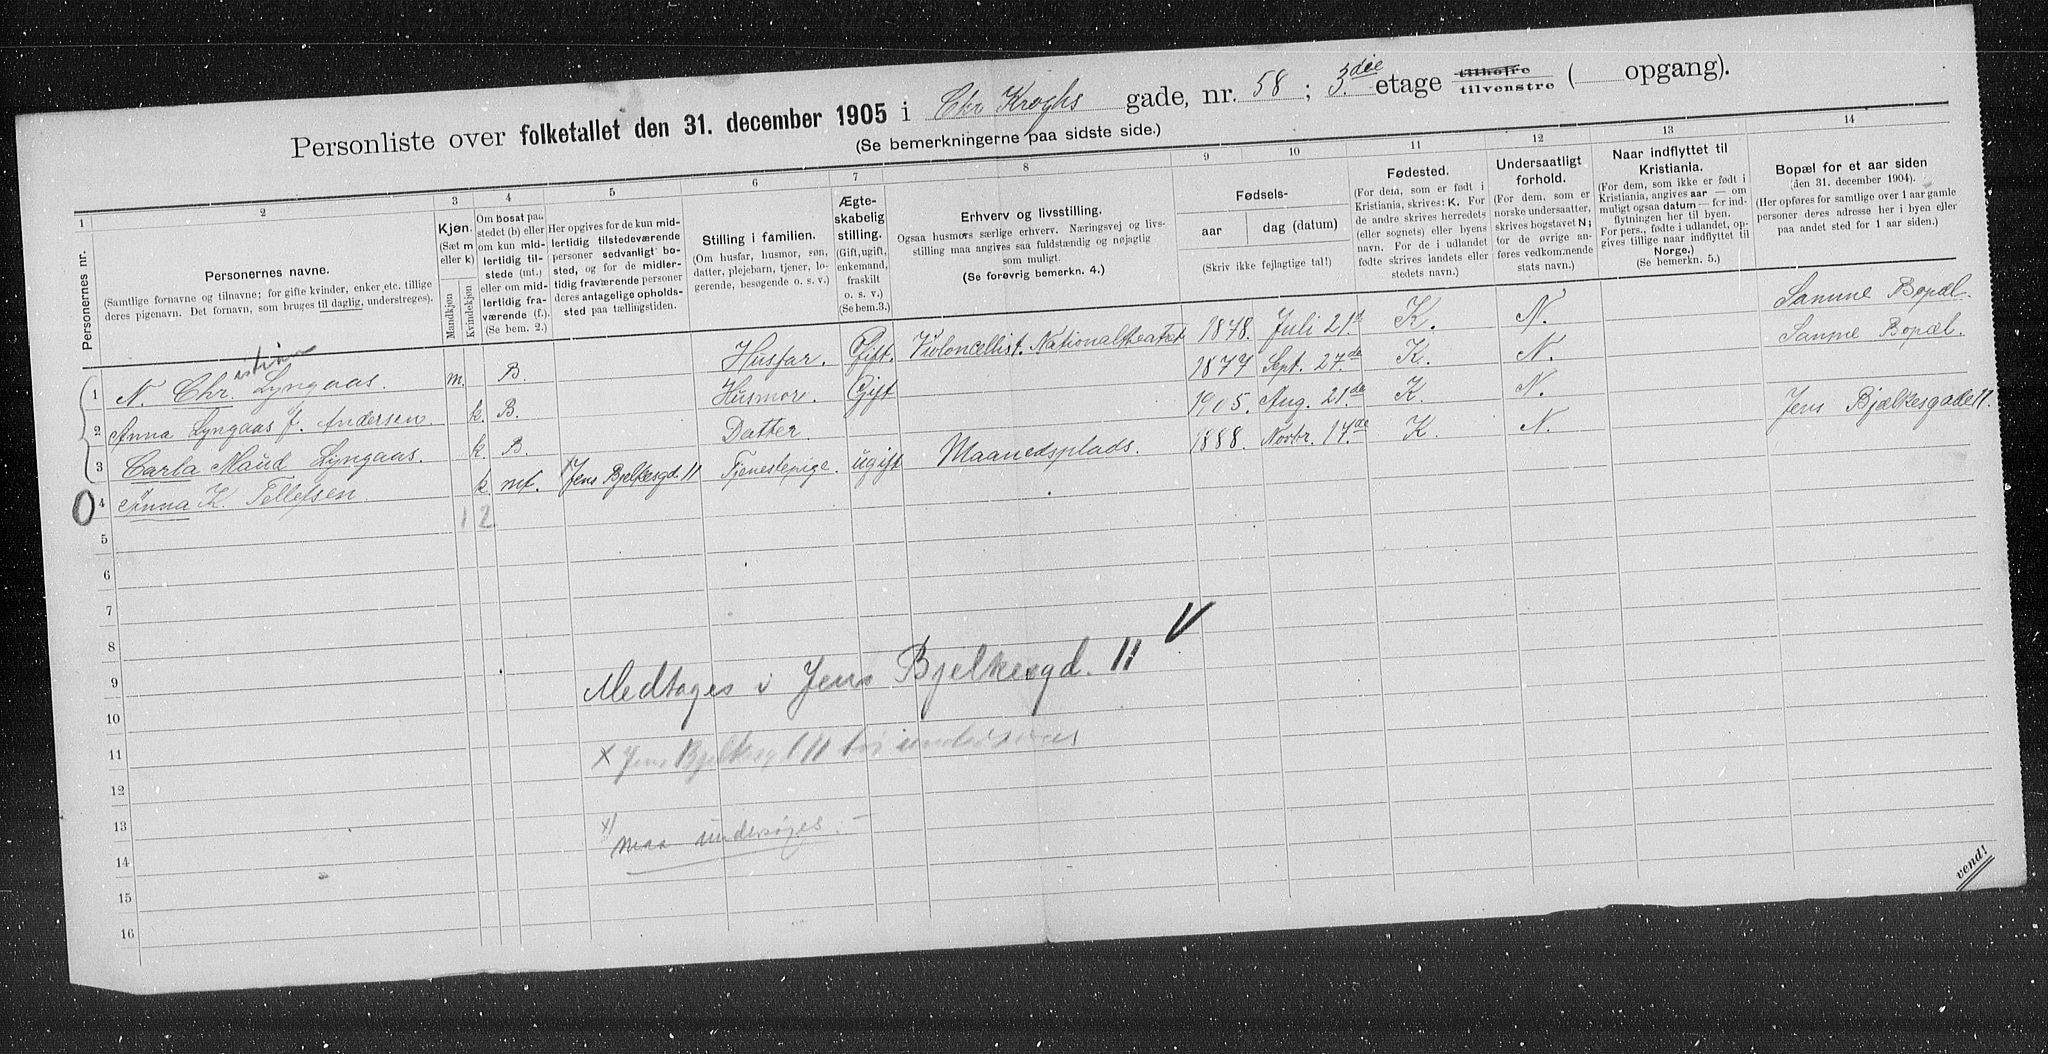 Personliste over folketallet den 31. december 1905 i Chr Kroghs gade, nr. 58 ; 3.die etage tilhøjre tilvenstre ( opgang).
(Se bemerkningerne paa sidste side.)
1 2 3 4 5 6 7 8 9 10 11 12 13 14
Personernes nr.
Personernes navne.
(Samtlige fornavne og tilnavne; for gifte kvinder, enker etc. tillige
deres pigenavn. Det fornavn, som bruges til daglig, understreges).
Kjøn.
(Sæt m
eller k)
Mandkjøn
Kvindekjøn
Om bosat paa
stedet (b) eller
om kun midlertidig tilstede (mt.)
eller om midlertidig fraværende (f.).
(Se bem. 2.)
Her opgives for de kun midlertidig tilstedeværende
personer sedvanligt bosted, og for de midlertidig fraværende personer
deres antagelige opholdssted paa tællingstiden.
Stilling i familien.
(Om husfar, husmor, søn,
datter, plejebarn, tjener, logerende, besøgende o. s. v.)
Ægteskabelig
stilling.
(Gift, ugift,
enkemand,
fraskilt
o. s. v.)
(Se bem.3.)
Erhverv og livsstilling.
Ogsaa husmors særlige erhverv. Næringsvej og livsstilling maa angives saa fuldstændig og nøjagtig
som muligt.
(Se forøvrig bemerkn. 4.)
Fødsels-
aar
dag (datum)
(Skriv ikke fejlagtige tal!)
Fødested.
(For dem, som er født i
Kristiania, skrives: K. For
de andre skrives herredets
(eller sognets) eller byens
navn. For de i udlandet
fødte skrives landets eller
stedets navn.)
Undersaatligt
forhold.
(For dem, som er
norske undersaatter,
skrives bogstavet N;
for de øvrige anføres vedkommende
stats navn).
Naar indflyttet til
Kristiania.
(For dem, som ikke er født i
Kristiania, angives aar — om
muligt ogsaa datum — for indflytningen her til byen.
For pers., fødte i udlandet, opgives tillige naar indflyttet til
Norge.)
(Se bemerkn. 5.)
Bopæl for et aar siden
(den 31. december 1904).
(Her opføres for samtlige over 1 aar gamle
personer deres adresse her i byen eller
paa andet sted for 1 aar siden.)
istian
1 N. Chr. Lyngaas. m. B. Husfar. Gift. Violoncellist. Nationaltheatret 1878. Juli 21.d K. N. Samme Bopæl.
2 Anna Lyngaas f. Andersen. k. B. Husmor. Gift 1877 Sept. 27.de K. N. Samme Bopæl.
3 Carla Maud Lyngaas. k. B. Datter. 1905. Aug. 21.de K. N.
0 4 Anna K. Tellefsen. k. mt. Jens Bjelkesgd. 11 Tjenestepige. ugift Maanedsplads. 1888. Novbr. 17.de K. N. Jens Bjælkesgade 11.
1 2
5
6
7
8
9
10
11
12
13
14
15
16
Medtages v Jens Bjelkesgd. 11 V
x Jens Bjelkesgd 11
x) maa undersøges. —
vend!